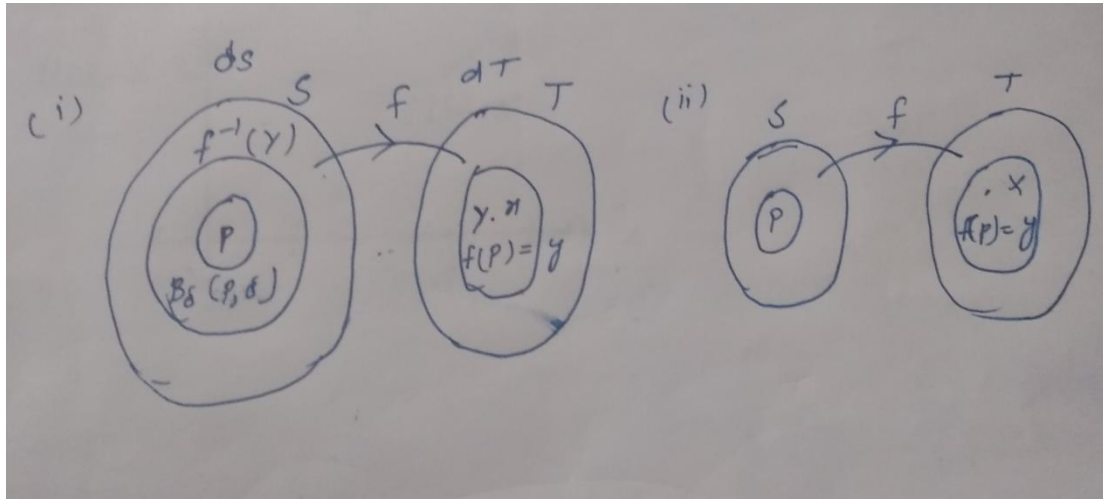 (i)
ds S
f
dT T
f⁻¹(Y)
P
Bδ (P, δ)
Y. x
f(P) = y
(ii)
S
f
T
P
. X
f(P) = y